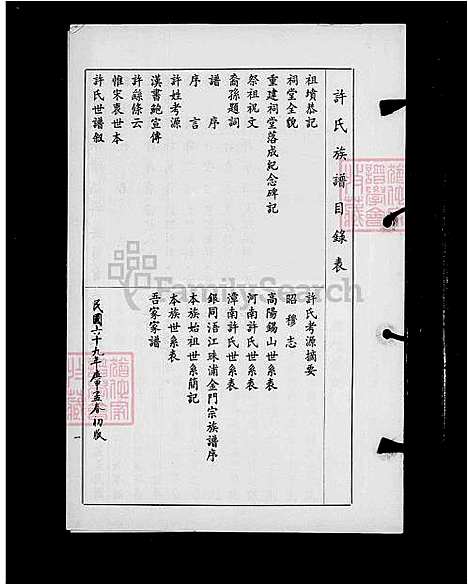 許氏族譜目錄表
祖墳恭記
祠堂全貌
重建祠堂落成紀念碑記
祭祖祝文
裔孫題詞
譜序
序言
許姓考源
漢書鮑宣傳
許絲條云
惟宋衷世本
許氏世譜叙
許氏考源摘要
昭穆志
高陽錫山世系表
河南許氏世系表
漳南許氏世系表
銀同浯江珠浦金門宗族譜序
本族始祖世系簡記
本族世系表
吾家家譜
民國六十九年庚申孟春初版
一
FamilySearch